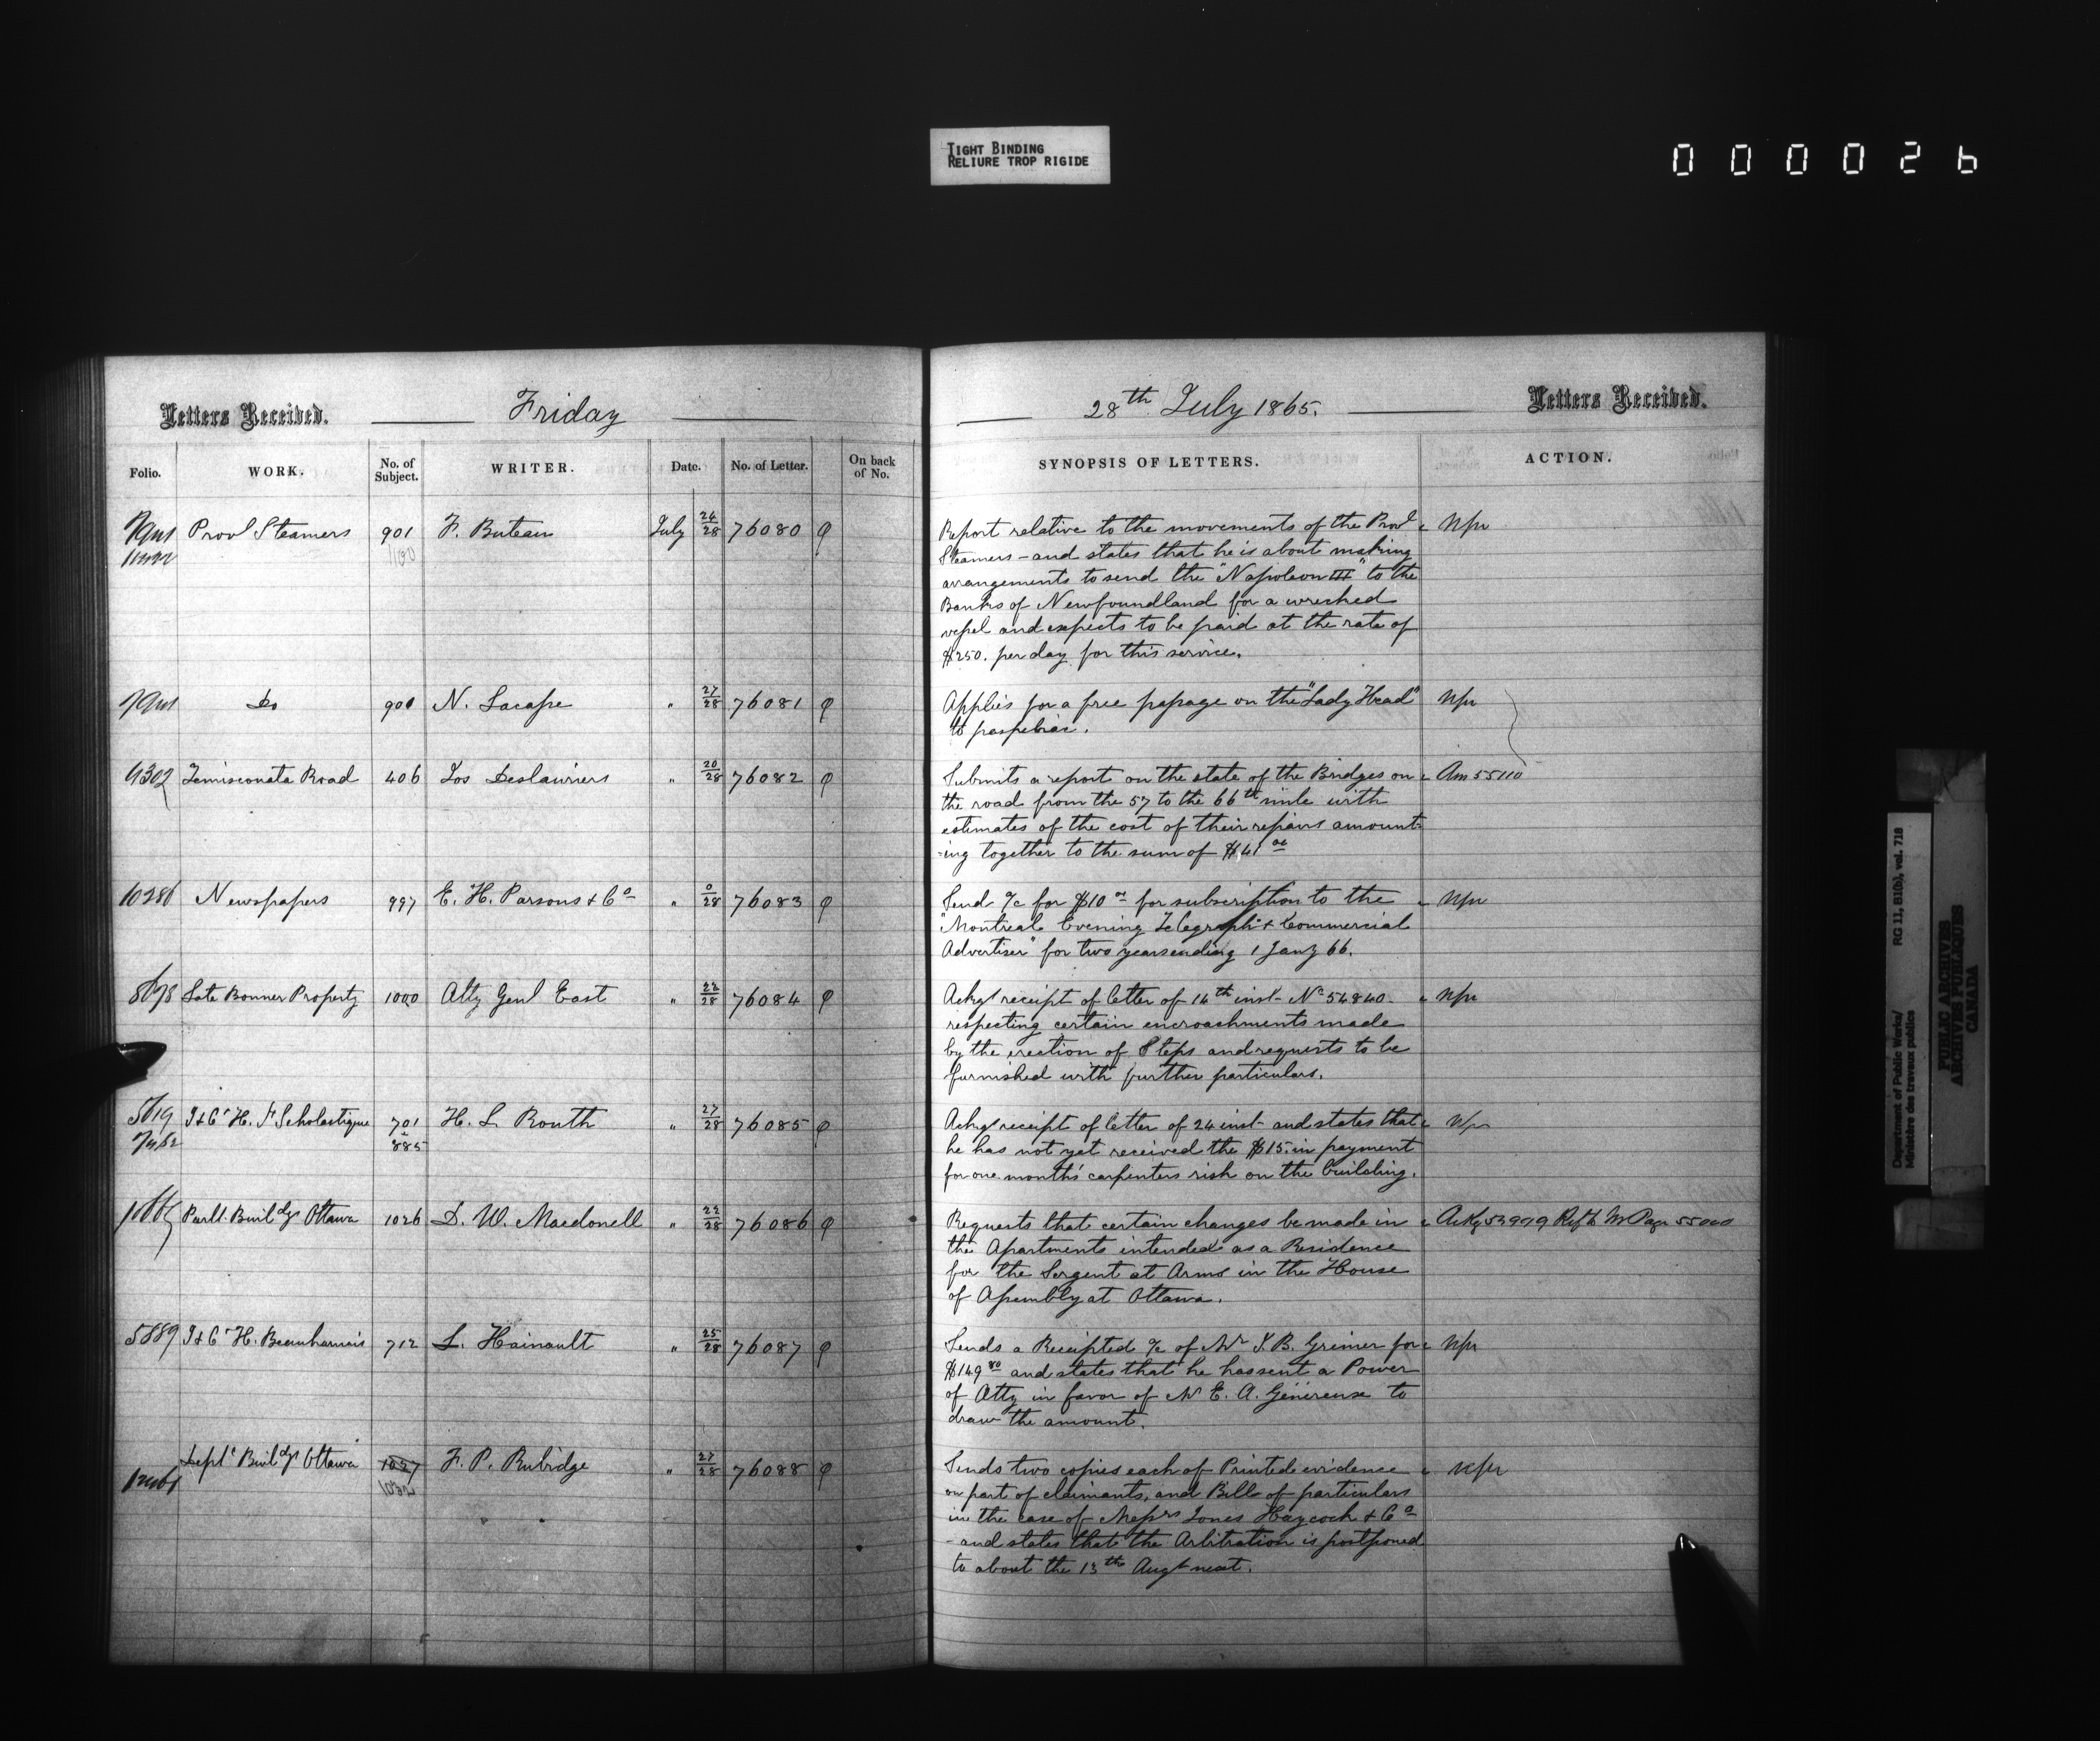 TIGHT BINDING
RELIURE TROP RIGIDE
0 0 0 0 2 6
Letters Received.
Friday
28th July 1865.
Letters Received.
Folio.
WORK.
No. of Subject.
WRITER.
Date.
No. of Letter.
On back of No.
SYNOPSIS OF LETTERS.
ACTION.
Provl Steamers 901 F. Buteau July 26/28 76080
Report relative to the movements of the Provl
Steamers - and states that he is about making
arrangements to send the "Napoleon III" to the
Banks of Newfoundland for a wrecked
vessel and expects to be paid at the rate of
$250. per day for this service.
Do 901 N. Lacasse " 27/28 76081
Applies for a free passage on the "Lady Head"
to paspebiac.
9302 Temiscouata Road 406 Jos Deslauriers " 20/28 76082
Submits a report on the state of the Bridges on Am 55110
the road from the 57 to the 66th mile with
estimates of the cost of their repairs amount-
-ing together to the sum of $41 00
10286 Newspapers 997 E. H. Parsons & Co " 0/28 76083
Send a/c for $10 00 for subscription to the
"Montreal Evening Telegraph & Commercial
Advertiser" for two years ending 1 Jany 66.
8698 Late Bonner Property 1000 Atty Genl East " 22/28 76084
Ackgs receipt of letter of 14th inst - No 54840
respecting certain encroachments made
by the erection of Steps and requests to be
furnished with further particulars.
5619 J & C H. St Scholastique 701 H. L. Routh " 27/28 76085
885
Ackgs receipt of letter of 24 inst - and states that
he has not yet received the $15. in payment
for one month's carpenters risk on the building.
Parlt. Buildgs Ottawa 1026 D. W. Macdonell " 22/28 76086
Requests that certain changes be made in
the Apartments intended as a Residence
for the Sergent at Arms in the House
of Assembly at Ottawa.
5889 J & C H. Beauharnais 712 L. Hainault " 25/28 76087
Sends a Receipted a/c of Mr J. B. Greiner for
$149 80 and states that he has sent a Power
of Atty in favor of Mr E. A. Généreux to
draw the amount.
Deptl Buildgs Ottawa 1027 F. P. Rubidge " 27/28 76088
1032
Sends two copies each of Printed evidence
on part of claimants, and Bill of particulars
in the case of Messrs Jones Haycock & Co
- and states that the Arbitration is postponed
to about the 13th Augt next.
Department of Public Works/
Ministère des travaux publics
RG 11, B1(b), vol. 718
PUBLIC ARCHIVES
ARCHIVES PUBLIQUES
CANADA